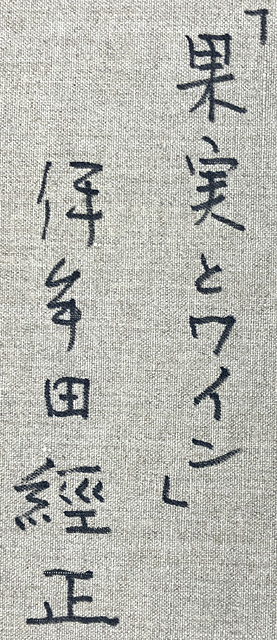 「果実とワイン」
伊牟田經正